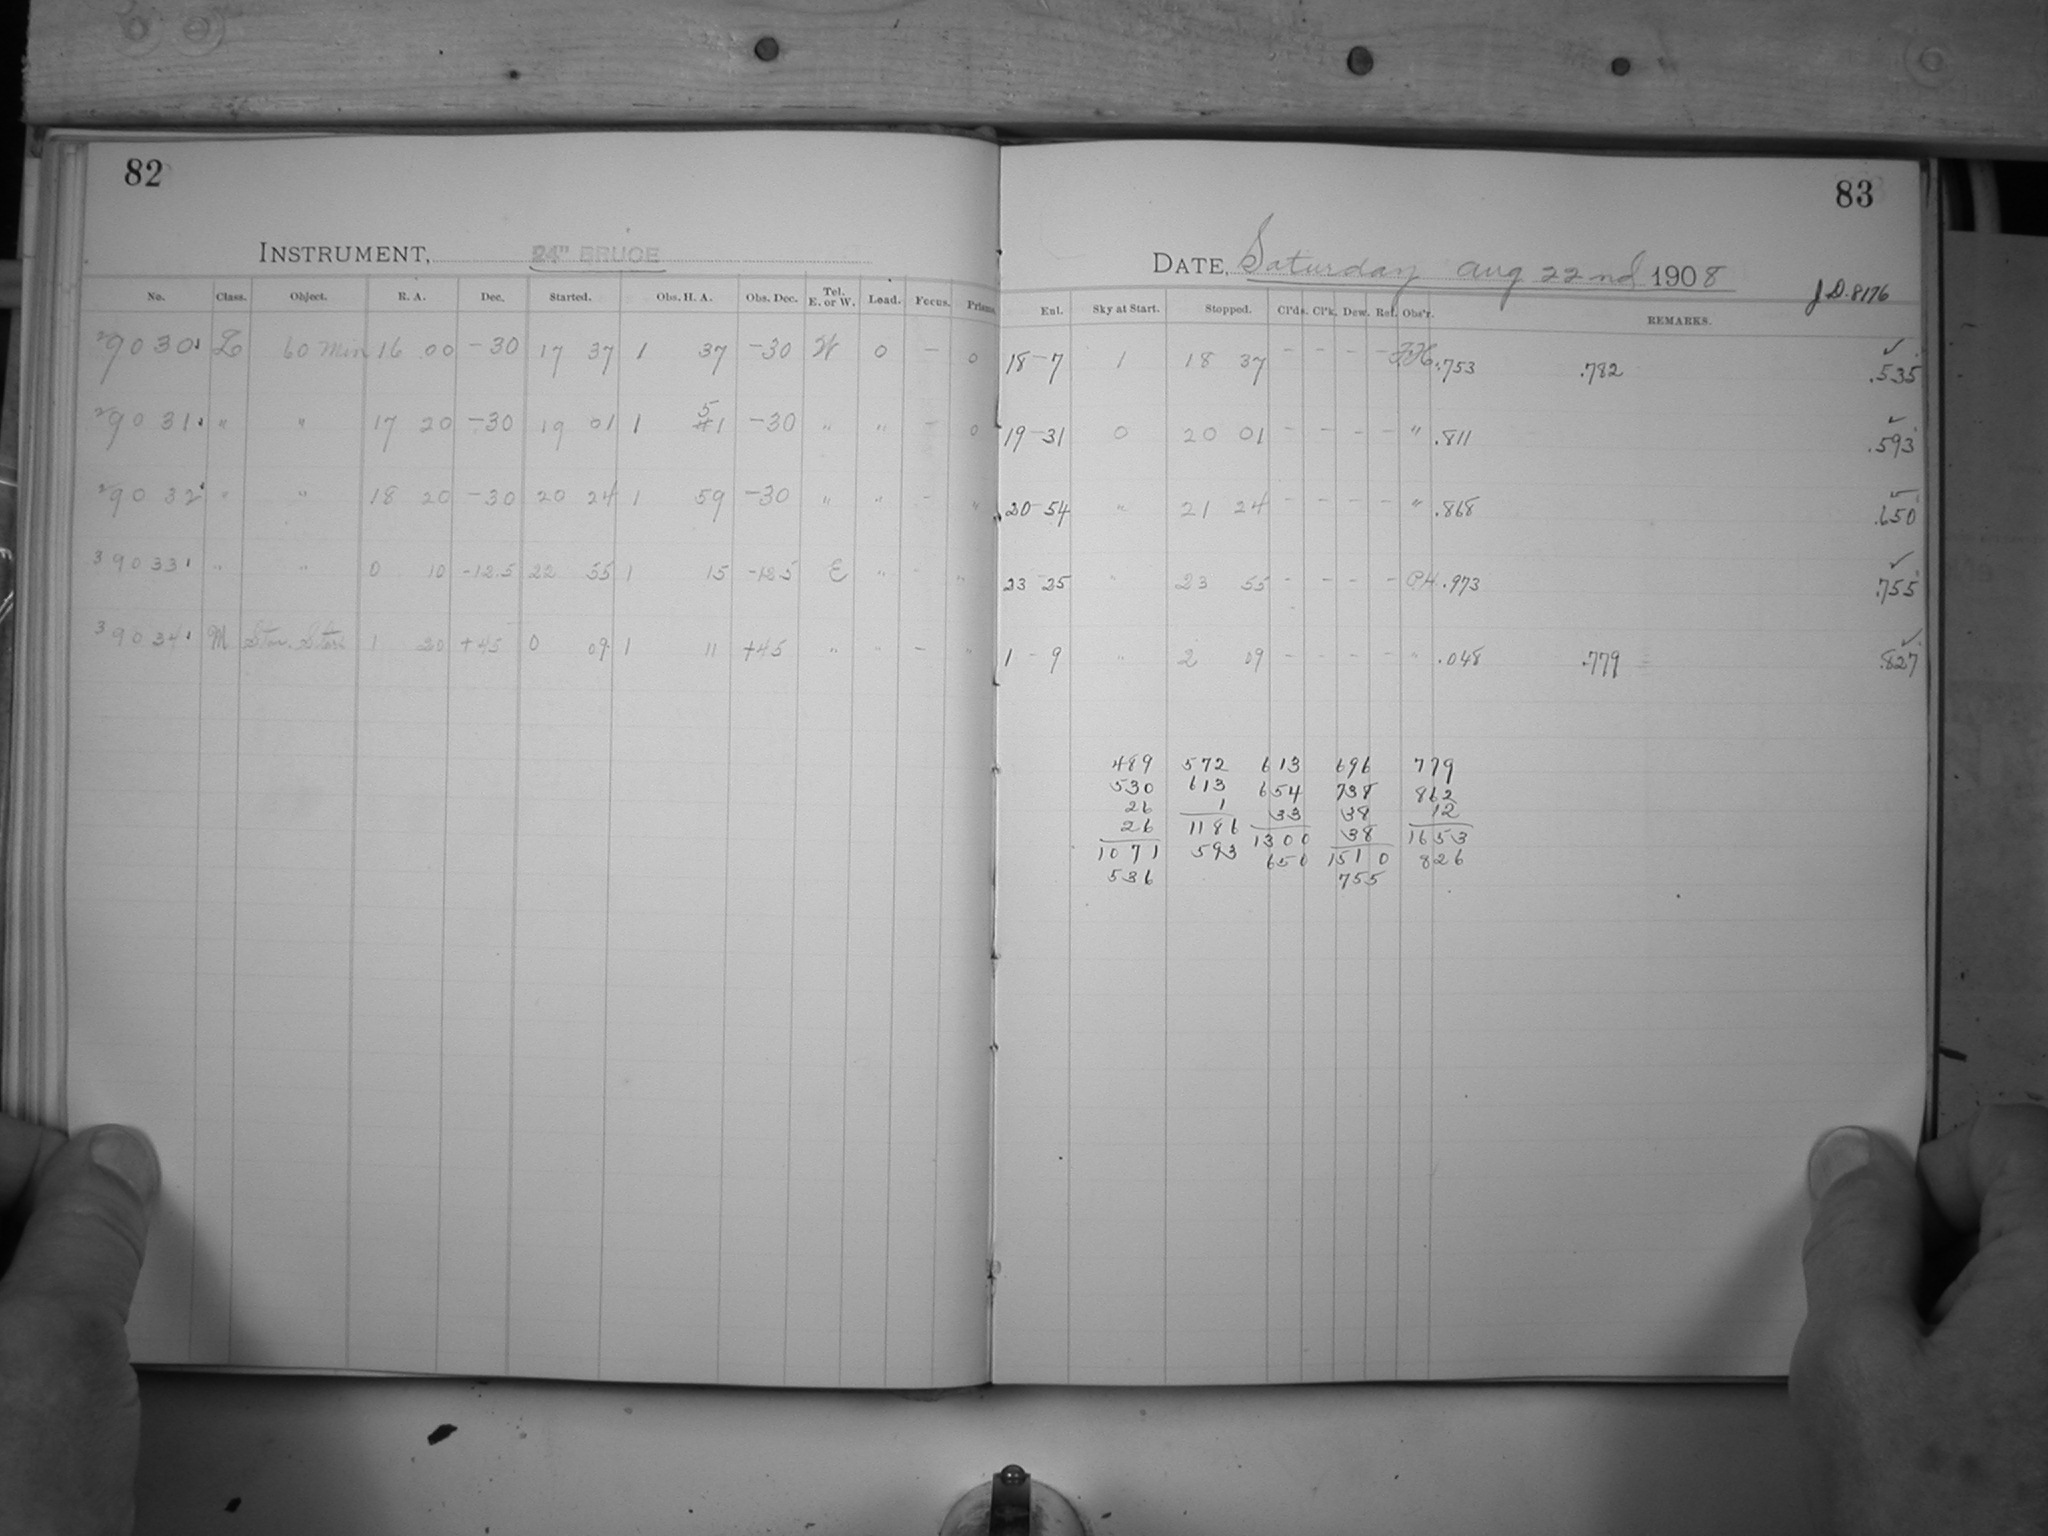 82
INSTRUMENT, 24" BRUCE
No. Class. Object. R. A. Dec. Started. Obs. H. A. Obs. Dec. Tel. E. or W. Load. Focus. Prisms.
9030 60 Min 16 00 -30 17 37 1 37 -30 W 0 - 0
9031 " " 17 20 -30 19 01 1 5 41 -30 " " - 0
9032 " " 18 20 -30 20 24 1 59 -30 " " - "
39033 " " 0 10 -12.5 22 55 1 15 -12.5 E " - "
39034 M 1 20 +45 0 09 1 11 +45 " " - "
83
DATE, Saturday Aug 22nd 1908
J D. 8176
Ent. Sky at Start. Stopped. Cl'ds. Cl'k. Dew. Ref. Obs'r. REMARKS.
18-7 1 18 37 - - - - .753 .782 .535
19-31 0 20 01 - - - - " .811 .593
20-54 " 21 24 - - - - " .868 .650
23-25 " 23 55 - - - - .973 .755
1-9 " 2 09 - - - - " .048 .779 .827
489 572 613 696 779
530 613 654 738 862
26 1 33 38 12
26 1186 1300 38 1653
1071 593 650 1510 826
536 755